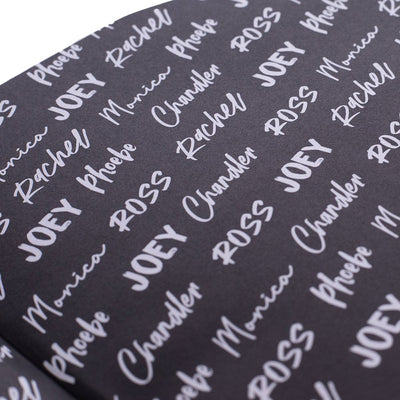 Phoebe Rachel Phoebe ROSS
JOEY Monica Chandler JOEY Monica
Monica Rachel Phoebe ROSS Rachel Chandler ROSS Rachel
JOEY Monica JOEY ROSS Chandler JOEY ROSS
Monica Phoebe Chandler ROSS Monica Phoebe Chandler
Rachel ROSS JOEY